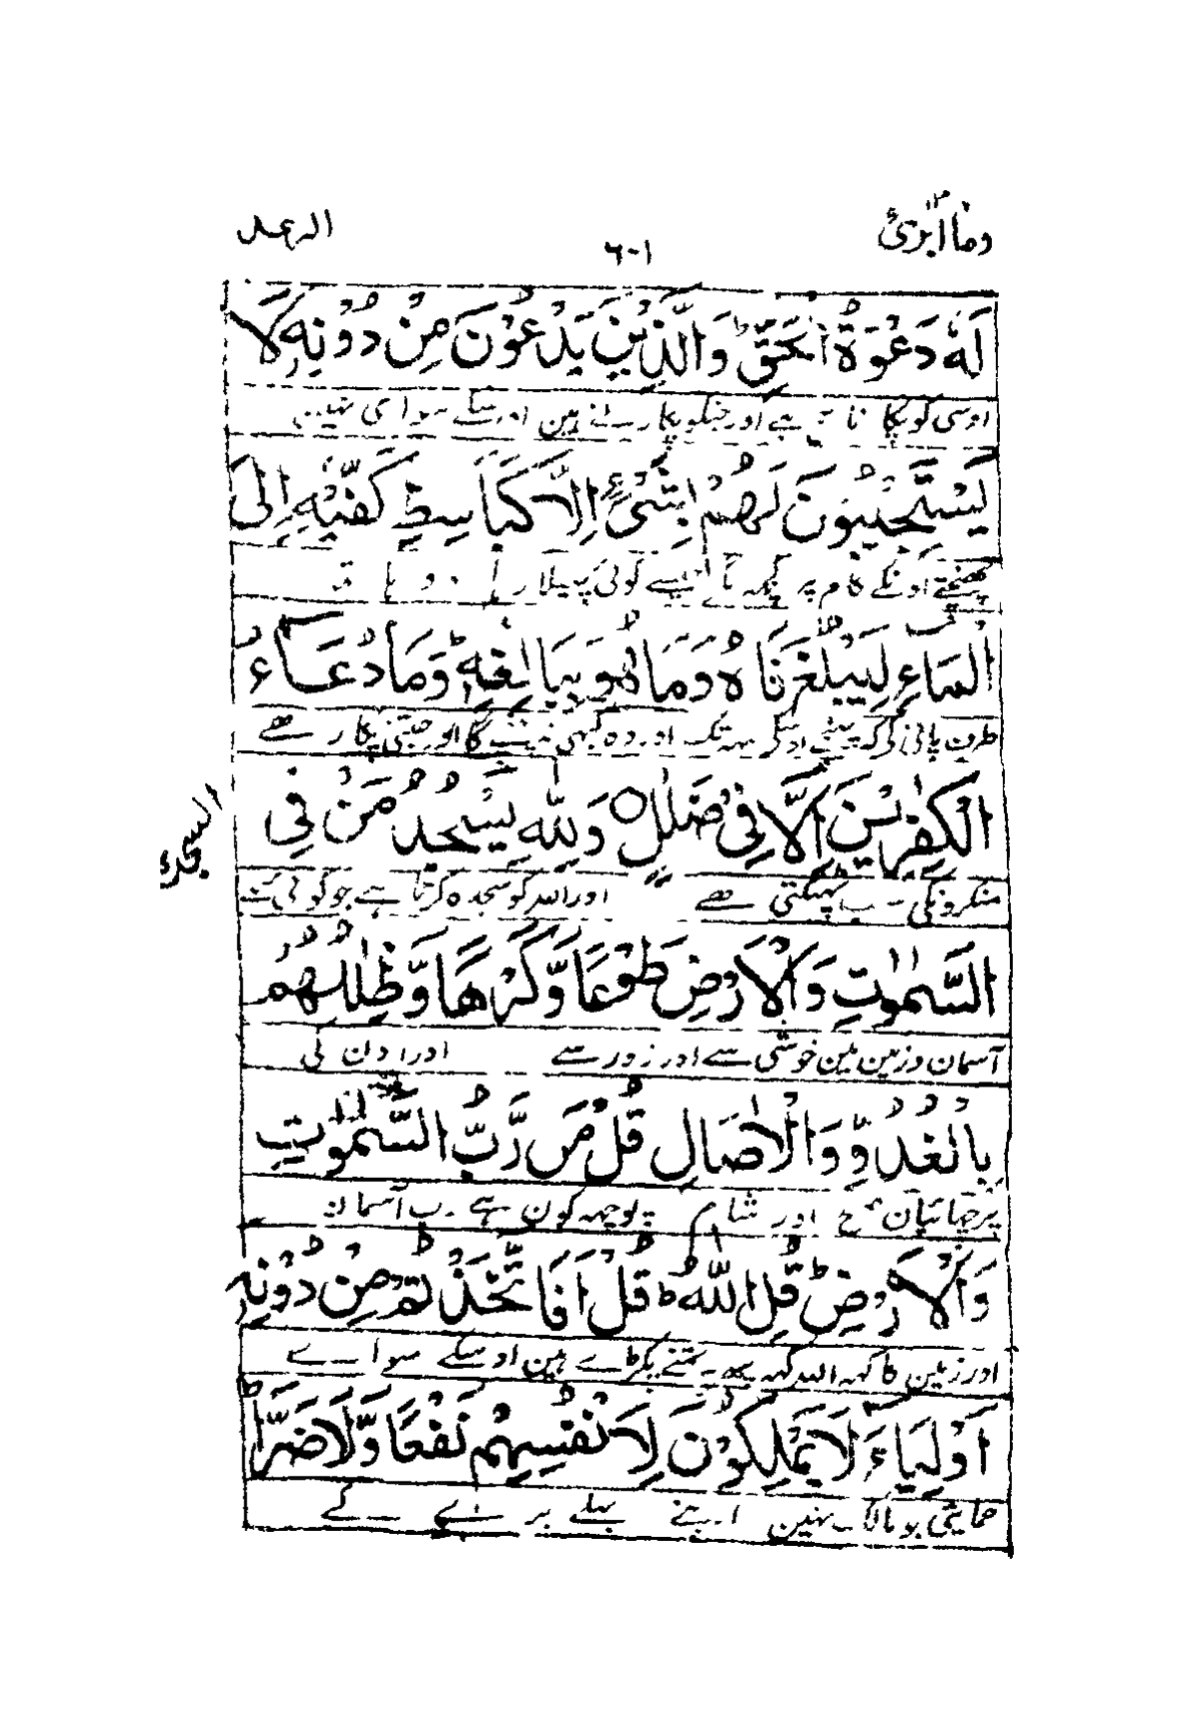 وما ابرئ ۱۳
۶۰۱
الرعد
لَهٗ دَعْوَةُ الْحَقِّ ؕ وَالَّذِيْنَ يَدْعُوْنَ مِنْ دُوْنِهٖ لَا
اوسی کو پکا نا ہے اور جنکو پکارتے ہین اوسکے سواى نہین
يَسْتَجِيْبُوْنَ لَهُمْ بِشَيْءٍ اِلَّا كَبَاسِطِ كَفَّيْهِ اِلَى
پہنچتے اونکے کام پر کچہ کوئی پہیلا رہا دو ہا
الْمَآءِ لِيَبْلُغَ فَاهُ وَمَا هُوَ بِبَالِغِهٖ ؕ وَمَا دُعَآءُ
طرف پانی کی کہ پہنچے اوسکی منہ تک اور وہ کبہی نہ پہنچے گا اور جتنی پکار ہے
الْكٰفِرِيْنَ اِلَّا فِيْ ضَلٰلٍ ○ وَلِلّٰهِ يَسْجُدُ مَنْ فِي
السجدة
منکرونکی سب بہٹکتی ہے اور اللہ کو سجدہ کرتا ہے جو کوئی
السَّمٰوٰتِ وَالْاَرْضِ طَوْعًا وَّكَرْهًا وَّظِلٰلُهُمْ
آسمان و زمین مین خوشی سے اور زور سے اور اون کی
بِالْغُدُوِّ وَالْاٰصَالِ قُلْ مَنْ رَّبُّ السَّمٰوٰتِ
پرچہائیان صبح اور شام پوچہہ کون ہے رب آسمان
وَالْاَرْضِ ؕ قُلِ اللّٰهُ ؕ قُلْ اَفَاتَّخَذْتُمْ مِنْ دُوْنِهٖ
اور زمین کا کہہ اللہ کہہ پہر تمنے پکڑے ہین اوسکے سوائے
اَوْلِيَآءَ لَا يَمْلِكُوْنَ لِاَنْفُسِهِمْ نَفْعًا وَّلَا ضَرًّا ؕ
حمایتی جو مالک نہین اپنے بہلے برے کے